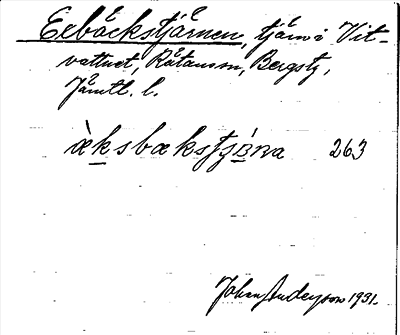 Exbäckstjärnen, tjärn i Vit-
vattnet, Rätansn, Bergs tg,
Jämtl. l.
æ̀ksbækstjæ̀ɴa 263
Johan Anderson 1931.